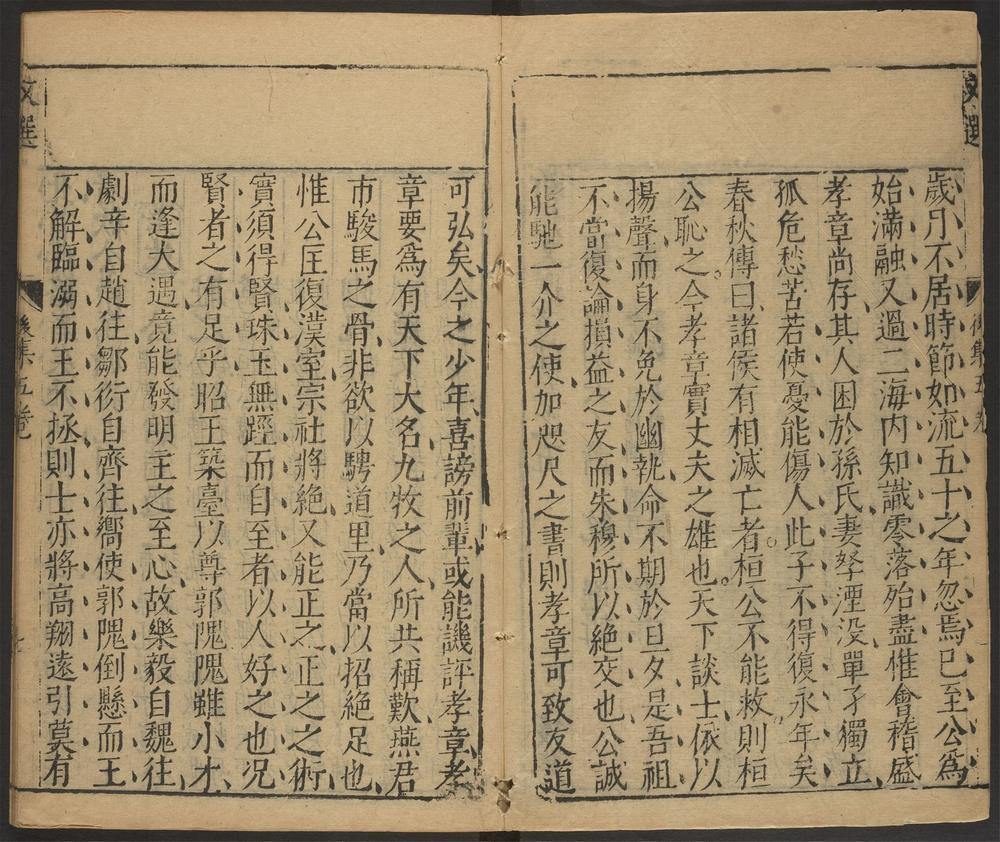 文選
歲月不居時節如流五十之年忽焉已至公爲
始滿融又過二海内知識零落殆盡惟會稽盛
孝章尚存其人困於孫氏妻孥湮没單孑獨立
孤危愁苦若使憂能傷人此子不得復永年矣
春秋傳曰諸侯有相滅亡者桓公不能救則桓
公恥之今孝章實丈夫之雄也天下談士依以
揚聲而身不免於幽執命不期於旦夕是吾祖
不當復論損益之友而朱穆所以絶交也公誠
能馳一介之使加咫尺之書則孝章可致友道
後集五卷
可弘矣今之少年喜謗前輩或能譏評孝章孝
章要爲有天下大名九牧之人所共稱歎燕君
市駿馬之骨非欲以騁道里乃當以招絶足也
惟公匡復漢室宗社將絶又能正之正之之術
實須得賢珠玉無踁而自至者以人好之也况
賢者之有足乎昭王築臺以尊郭隗隗雖小才
而逢大遇竟能發明主之至心故樂毅自魏往
劇辛自趙往鄒衍自齊往嚮使郭隗倒懸而王
不解臨溺而王不拯則士亦將高翔遠引莫有
文選
後集五卷